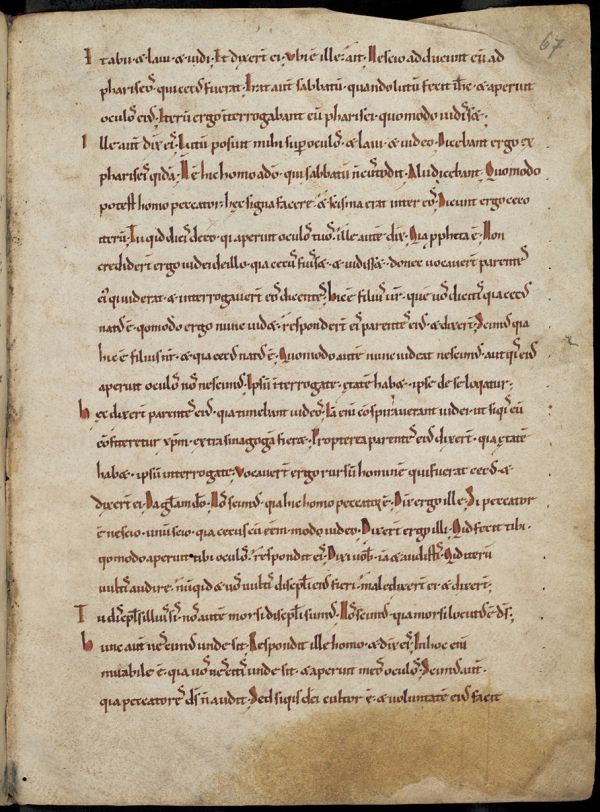 67
I tabii & laui & uidi. Et dixert ei. Ubi ē ille. ait. Nescio adducunt eū ad
phariseos. qui cecus fuerat. Erat aut sabbatū. quando lutū fecit ihs. & aperuit
oculos eius. Iterū ergo interrogabant eū pharisei. quomodo uidisset.
Ille aut dix eis. Lutū posuit mihi sup oculos. & laui & uideo. Dicebant ergo ex
phariseis qidā. Nē hic homo a do. qui sabbatū n custodit. Alii dicebant. Quomodo
potest homo peccator. hec signa facere. & scisma erat inter eos. Dicunt ergo ceco
iterū. Tu qid dicis de eo. qi aperuit oculos tuos. ille autē dix. Qia ppheta ē. Non
credidert ergo iudei de illo. qia cecus fuisset & uidisset. donec uocauert parentes
ei qi uiderat. & interrogauert eos dicentes. hic ē filius ur. que uos dicitis qia cecus
natus ē. qomodo ergo nunc uidet. respondert eis parentes eius & dixert. Scimus qia
hic ē filius nr. & qia cecus natus ē. Quomodo autē nunc uideat nescimus. aut qis eius
aperuit oculos nos nescimus. Ipsū iterrogate. etatē habet. ipse de se loqatur;
hec dixert parentes eius. qia timebant iudeos. Iā eni cōspirauerant iudei. ut siqis eū
cōfiteretur xpm. extra sinagogā fieret. Propterea parentes eius dixert. qia etatē
habet. ipsū interrogate. Vocauert ergo rursū hominē qui fuerat cecus. &
dixert ei. Da glam do. Nos scimus qia hic homo peccator ē. Dix ergo ille. Si peccator
ē nescio. unū scio. qia cecus cū eem. modo uideo. Dixert ergo illi. Qid fecit tibi.
qomodo aperuit tibi oculos. respondit eis. Dixi uob iā & audistis. Qid iterū
uultis audire. nūqid & uos uultis discipli eius fieri. maledixert ei & dixert;
Tu discipls illius sis. nos autē moysi discipli sumus. Nos scimus. qia moysi locutus ē ds;
hunc aut nescimus unde sit. Respondit ille homo. & dix eis. In hoc eni
mirabile ē. qia uos nescitis unde sit. & aperuit meos oculos. Scimus aut.
qia peccatores ds n audit. Sed siqis dei cultor ē. & voluntatē eius facit